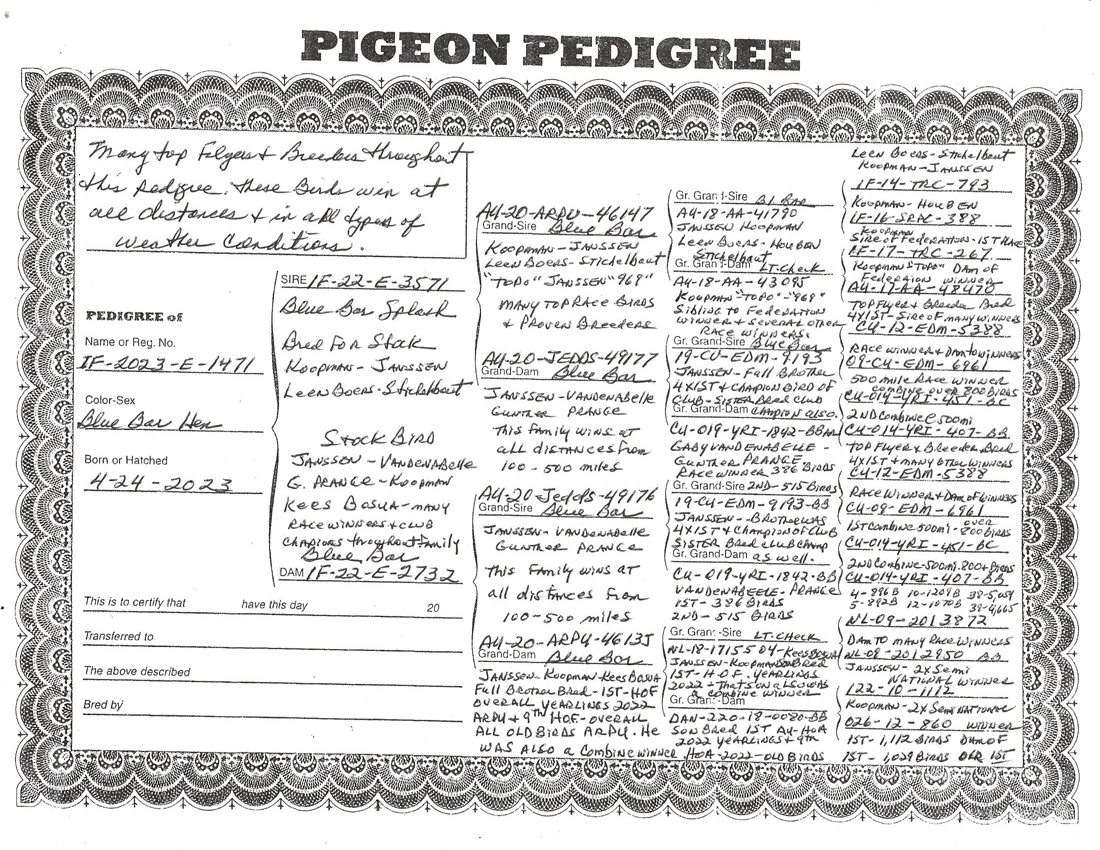 PIGEON PEDIGREE
Many top Flyers & Breeders throughout
this Pedigree. these Birds win at
all distances & in all types of
weather Conditions.
PEDIGREE of
Name or Reg. No.
IF-2023-E-1471
Color-Sex
Blue Bar Hen
Born or Hatched
4-24-2023
This is to certify that have this day 20
Transferred to
The above described
Bred by
SIRE IF-22-E-3571
Blue Bar Splash
Bred For Stock
Koopman - Janssen
Leen Boers-Stichelbaut
Stock Bird
Janssen - Vandenabelle
G. Prange - Koopman
Kees Bosua - many
Race winners & club
Champions throughout Family
Blue Bar
DAM IF-22-E-2732
AU-20-ARPU-46147
Grand-Sire Blue Bar
Koopman - Janssen
Leen Boers - Stichelbaut
"Topo" Janssen "969"
many top Race Birds
& Proven Breeders
AU-20-JEDDS-49177
Grand-Dam Blue Bar
Janssen - Vandenabelle
Gunther Prange
This Family wins at
all distances from
100 - 500 miles
AU-20-Jedds-49176
Grand-Sire Blue Bar
Janssen - Vandenabelle
Gunther Prange
This Family wins at
all distances From
100-500 miles
AU-20-ARPU-46135
Grand-Dam Blue Bar
Janssen-Koopman-Kees Bosua
Full Brother Bred - 1st-HOF
overall yearlings 2022
ARPU & 9th HOF-overall
all old Birds ARPU. He
was also a Combine winner
Gr. Grand-Sire Bl Bar
AU-18-AA-41790
Janssen Koopman
Leen Boers-Houben
Stichelbaut
Gr. Grand-Dam LT-Check
AU-18-AA-43095
Koopman "Topo"-"969"
Sibling to Federation
winner & several other
Race winners.
Gr. Grand-Sire Blue Bar
19-CU-EDM-9193
Janssen - Full Brother
4x1st & Champion Bird of
Club-Sister Bred Club
Gr. Grand-Dam Champion also.
CU-019-YRI-1842-BBAR
Gaby Vandenabelle -
Gunther Prange
Race winner 386 Birds
Gr. Grand-Sire 2nd-515 Birds
19-CU-EDM-9193-BB
Janssen - Brother was
4x1st & Champion of Club
Sister Bred Club Champ
Gr. Grand-Dam as well.
CU-019-YRI-1842-BB
Vandenabeele-Prange
1st - 386 Birds
2nd - 515 Birds
Gr. Grand-Sire LT-Check
NL-18-1715504-Kees Bosua
Janssen-Koopman Son Bred
1st-H.O.F. yearlings
2022 - That son also was
a combine winner
Gr. Grand-Dam
DAN-220-18-0080-BB
Son Bred 1st AU-HoA
2022 yearlings & 9th
HoA-2022-old Birds
Leen Boers-Stichelbaut
Koopman-Janssen
IF-14-TRC-793
Koopman-Houben
IF-16-SRPC-388
Koopman
Sire of Federation-1st Race
IF-17-TRC-267
Koopman "Topo" Dam of
Federation winner
AU-17-AA-48470
Top Flyer & Breeder Bred
4x1st-Sire of many winners
CU-12-EDM-5388
Race winner & Dam to winners
09-CU-EDM-6961
500 mile Race winner
combine over 800 Birds
CU-014-YRI-451-BC
2nd Combine @ 500mi
CU-014-YRI-407-BB
Top Flyer & Breeder Bred
4x1st & many other winners
CU-12-EDM-5388
Race winner & Dam of winners
CU-09-EDM-6961
1st Combine 500mi-over
800 Birds
CU-014-YRI-451-BC
2nd Combine-500mi.800+Birds
CU-014-YRI-407-BB
4-896B 10-1209B
5-892B 12-1070B 38-4,665
NL-09-2013872
Dam to many Race winners
NL-09-2012950 BB
Janssen - 2x Semi
National winner
122-10-1112
Koopman-2x Semi National
026-12-860 winner
1st-1,112 Birds Dam of
1st-1,029 Birds